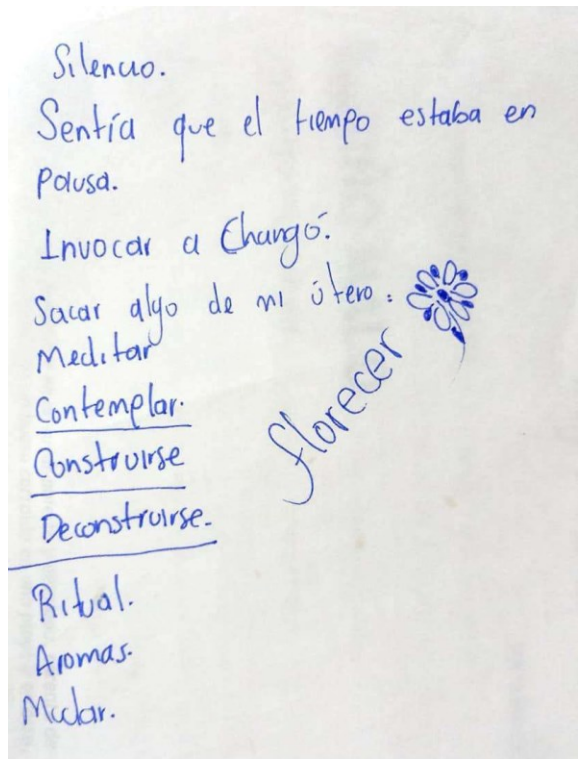 Silencio.
Sentía que el tiempo estaba en
pausa.
Invocar a Changó.
Sacar algo de mi útero.
Meditar
Contemplar.
Construirse
Deconstruirse.
florecer
Ritual.
Aromas.
Mudar.